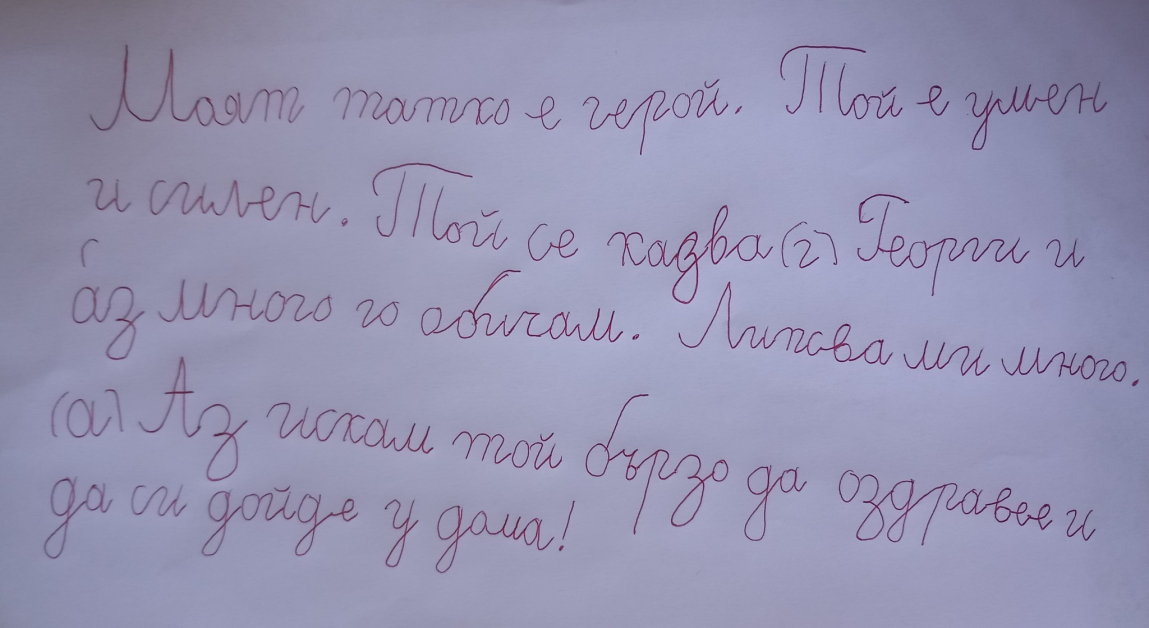 Моят татко е герой. Той е умен
и силен. Той се казва (г) Георги и
аз много го обичам. Липсва ми много.
(а) Аз искам той бързо да оздравее и
да си дойде у дома!